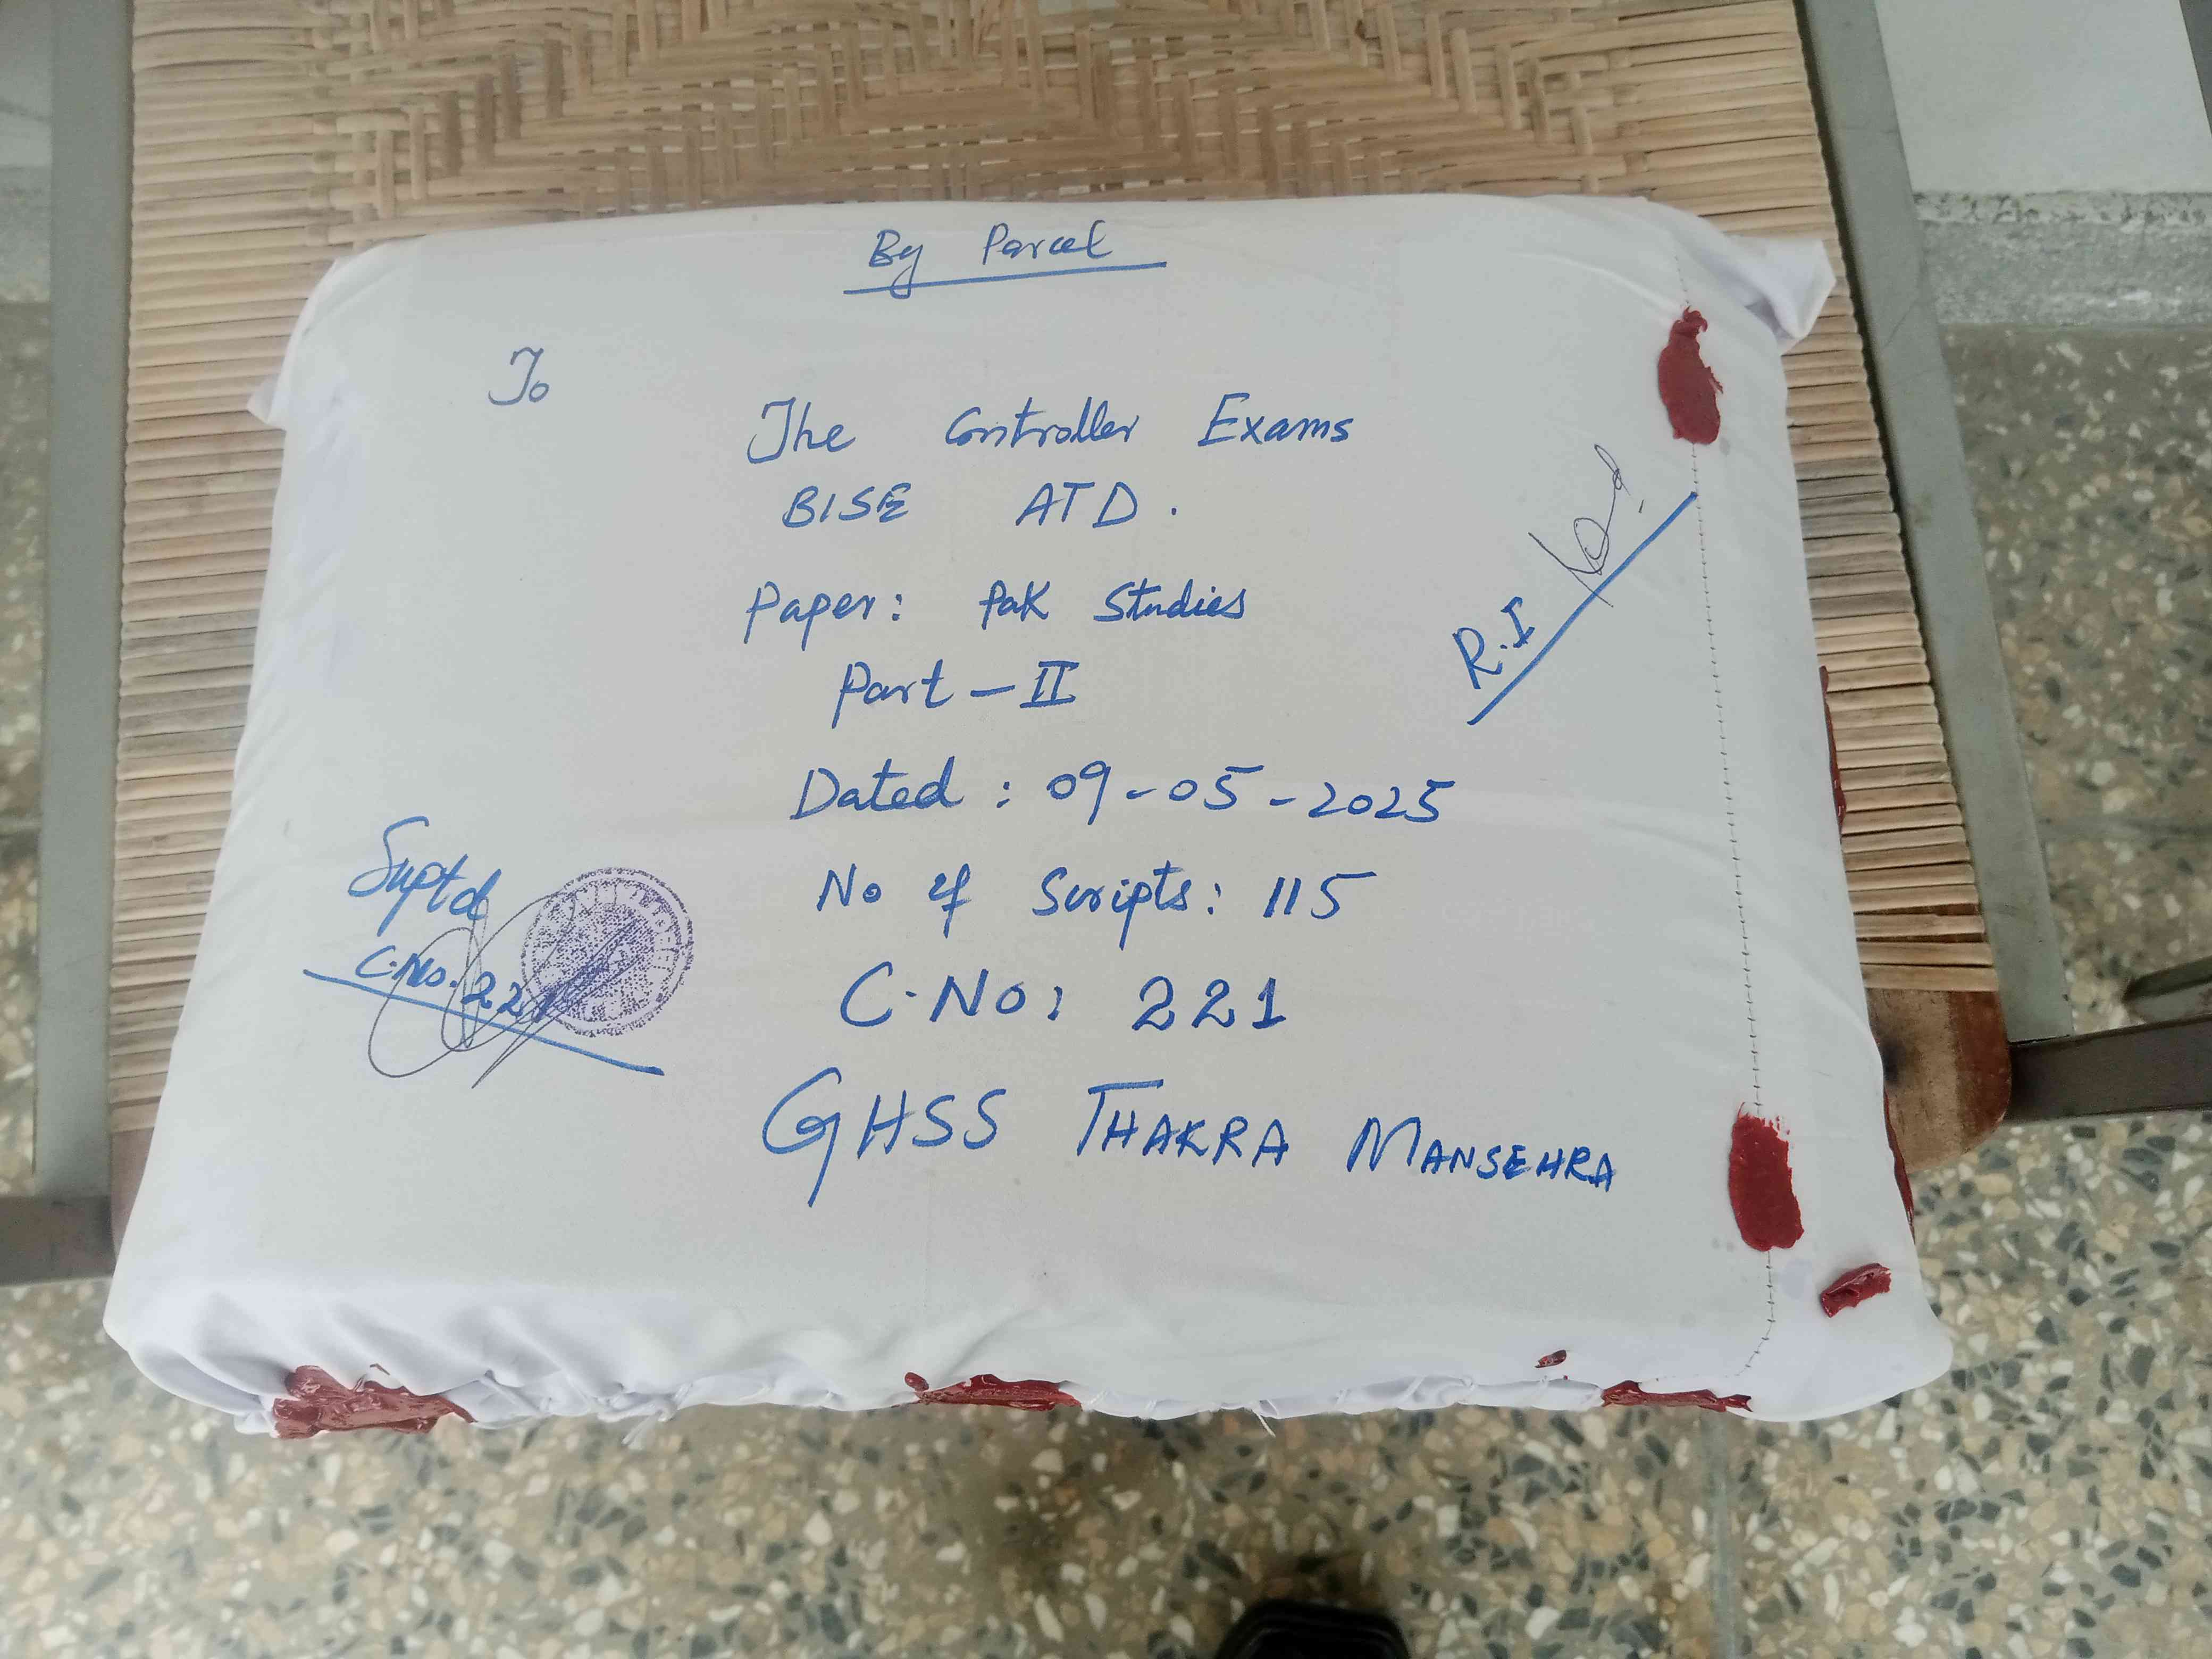 By Parcel
To
The Controller Exams
BISE ATD.
Paper: Pak Studies
Part - II
Dated : 09-05-2025
No of Scripts: 115
C.No: 221
GHSS THAKRA MANSEHRA
R.I
Suptd
C.No. 221